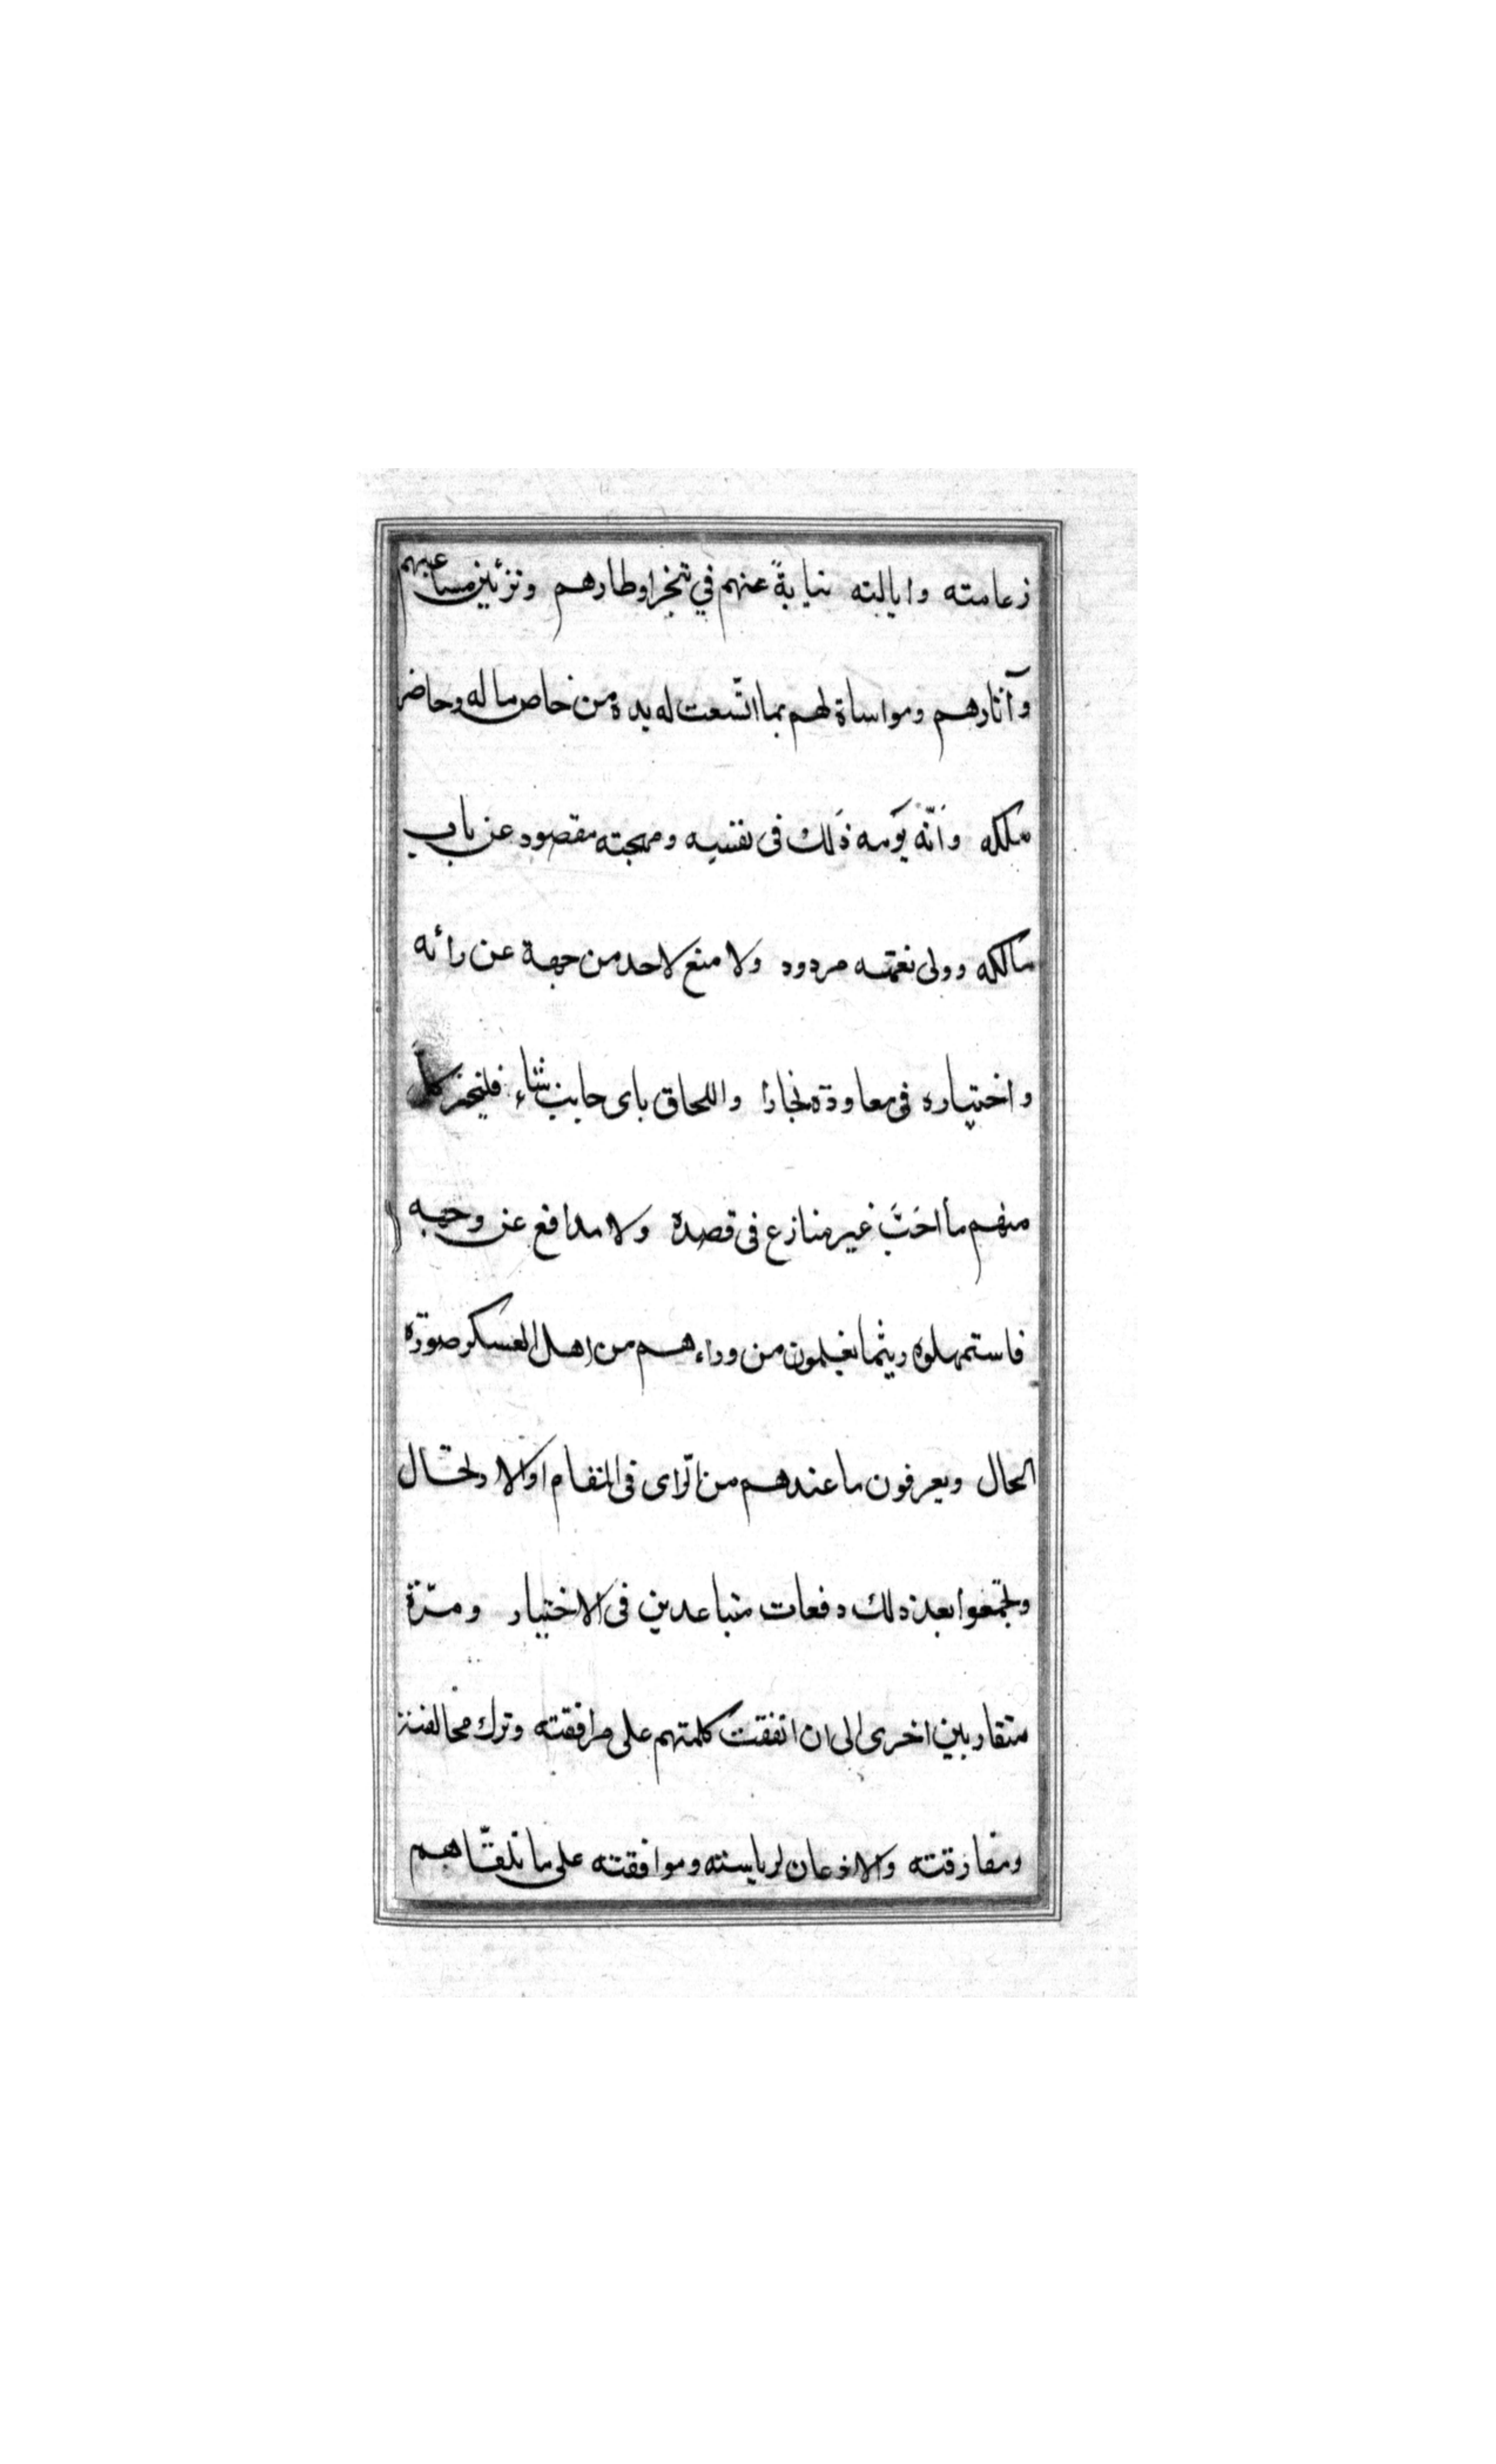 زعامته وايالته نيابةً عنهم في تنجز اوطارهم وتزئين مساعيهم
وآثارهم ومواساة لهم بما اتّسعت له يده من خاص ماله وحاضر
ملكه وانّه يومه ذلك في نفسه ومهجته مقصود عن باب
مالكه وولى نعمته مردود ولا منع لاحد من جهة عن رائه
واختياره فى معاودة بخارا واللحاق باى جانب شاء فليختر كل
منهم ما احَبَّ غير منازع فى قصده ولا مدافع عن وجهه
فاستمهلوه ريثما يعلمون من وراءهم من اهل العسكر صورة
الحال ويعرفون ما عندهم من الرّاى فى المقام او الارتحال
وتجمعوا بعد ذلك دفعات متباعدين فى الاختيار ومرّة
متقاربين اخرى الى ان اتفقت كلمتهم على مرافقته وترك مخالفته
ومفارقته والاذعان لرياسته وموافقته على ما تلقّاهم